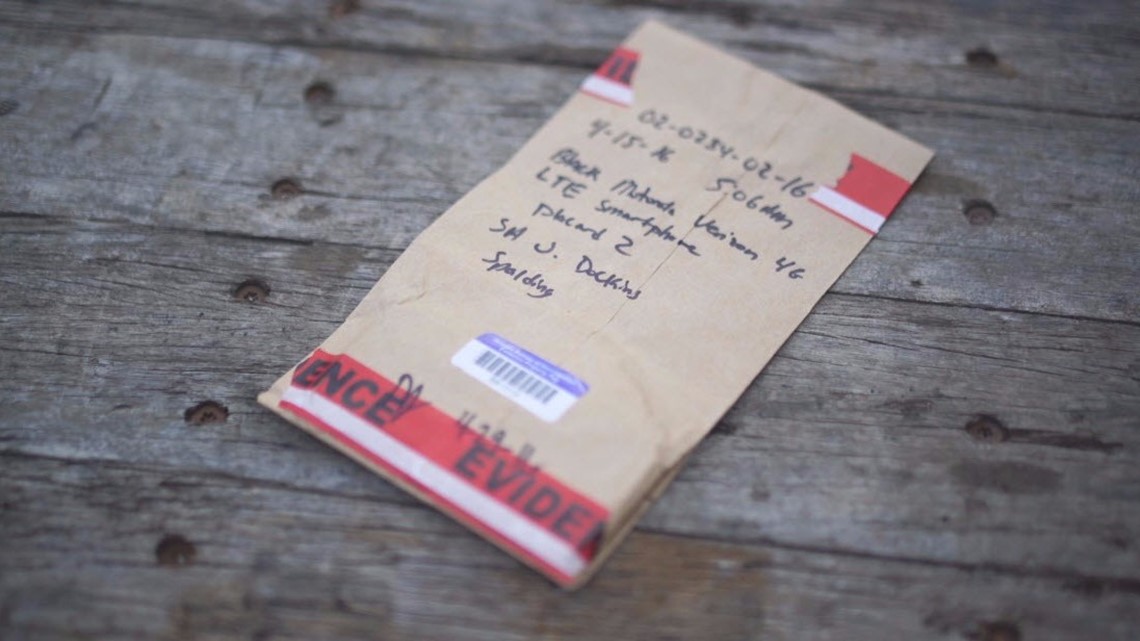 02-0234-02-16
4-15-16 5:06AM
Black Motorola Verizon 4G
LTE Smartphone
placard 2
SA J. Dockins
Spalding
ENCE
EVIDE